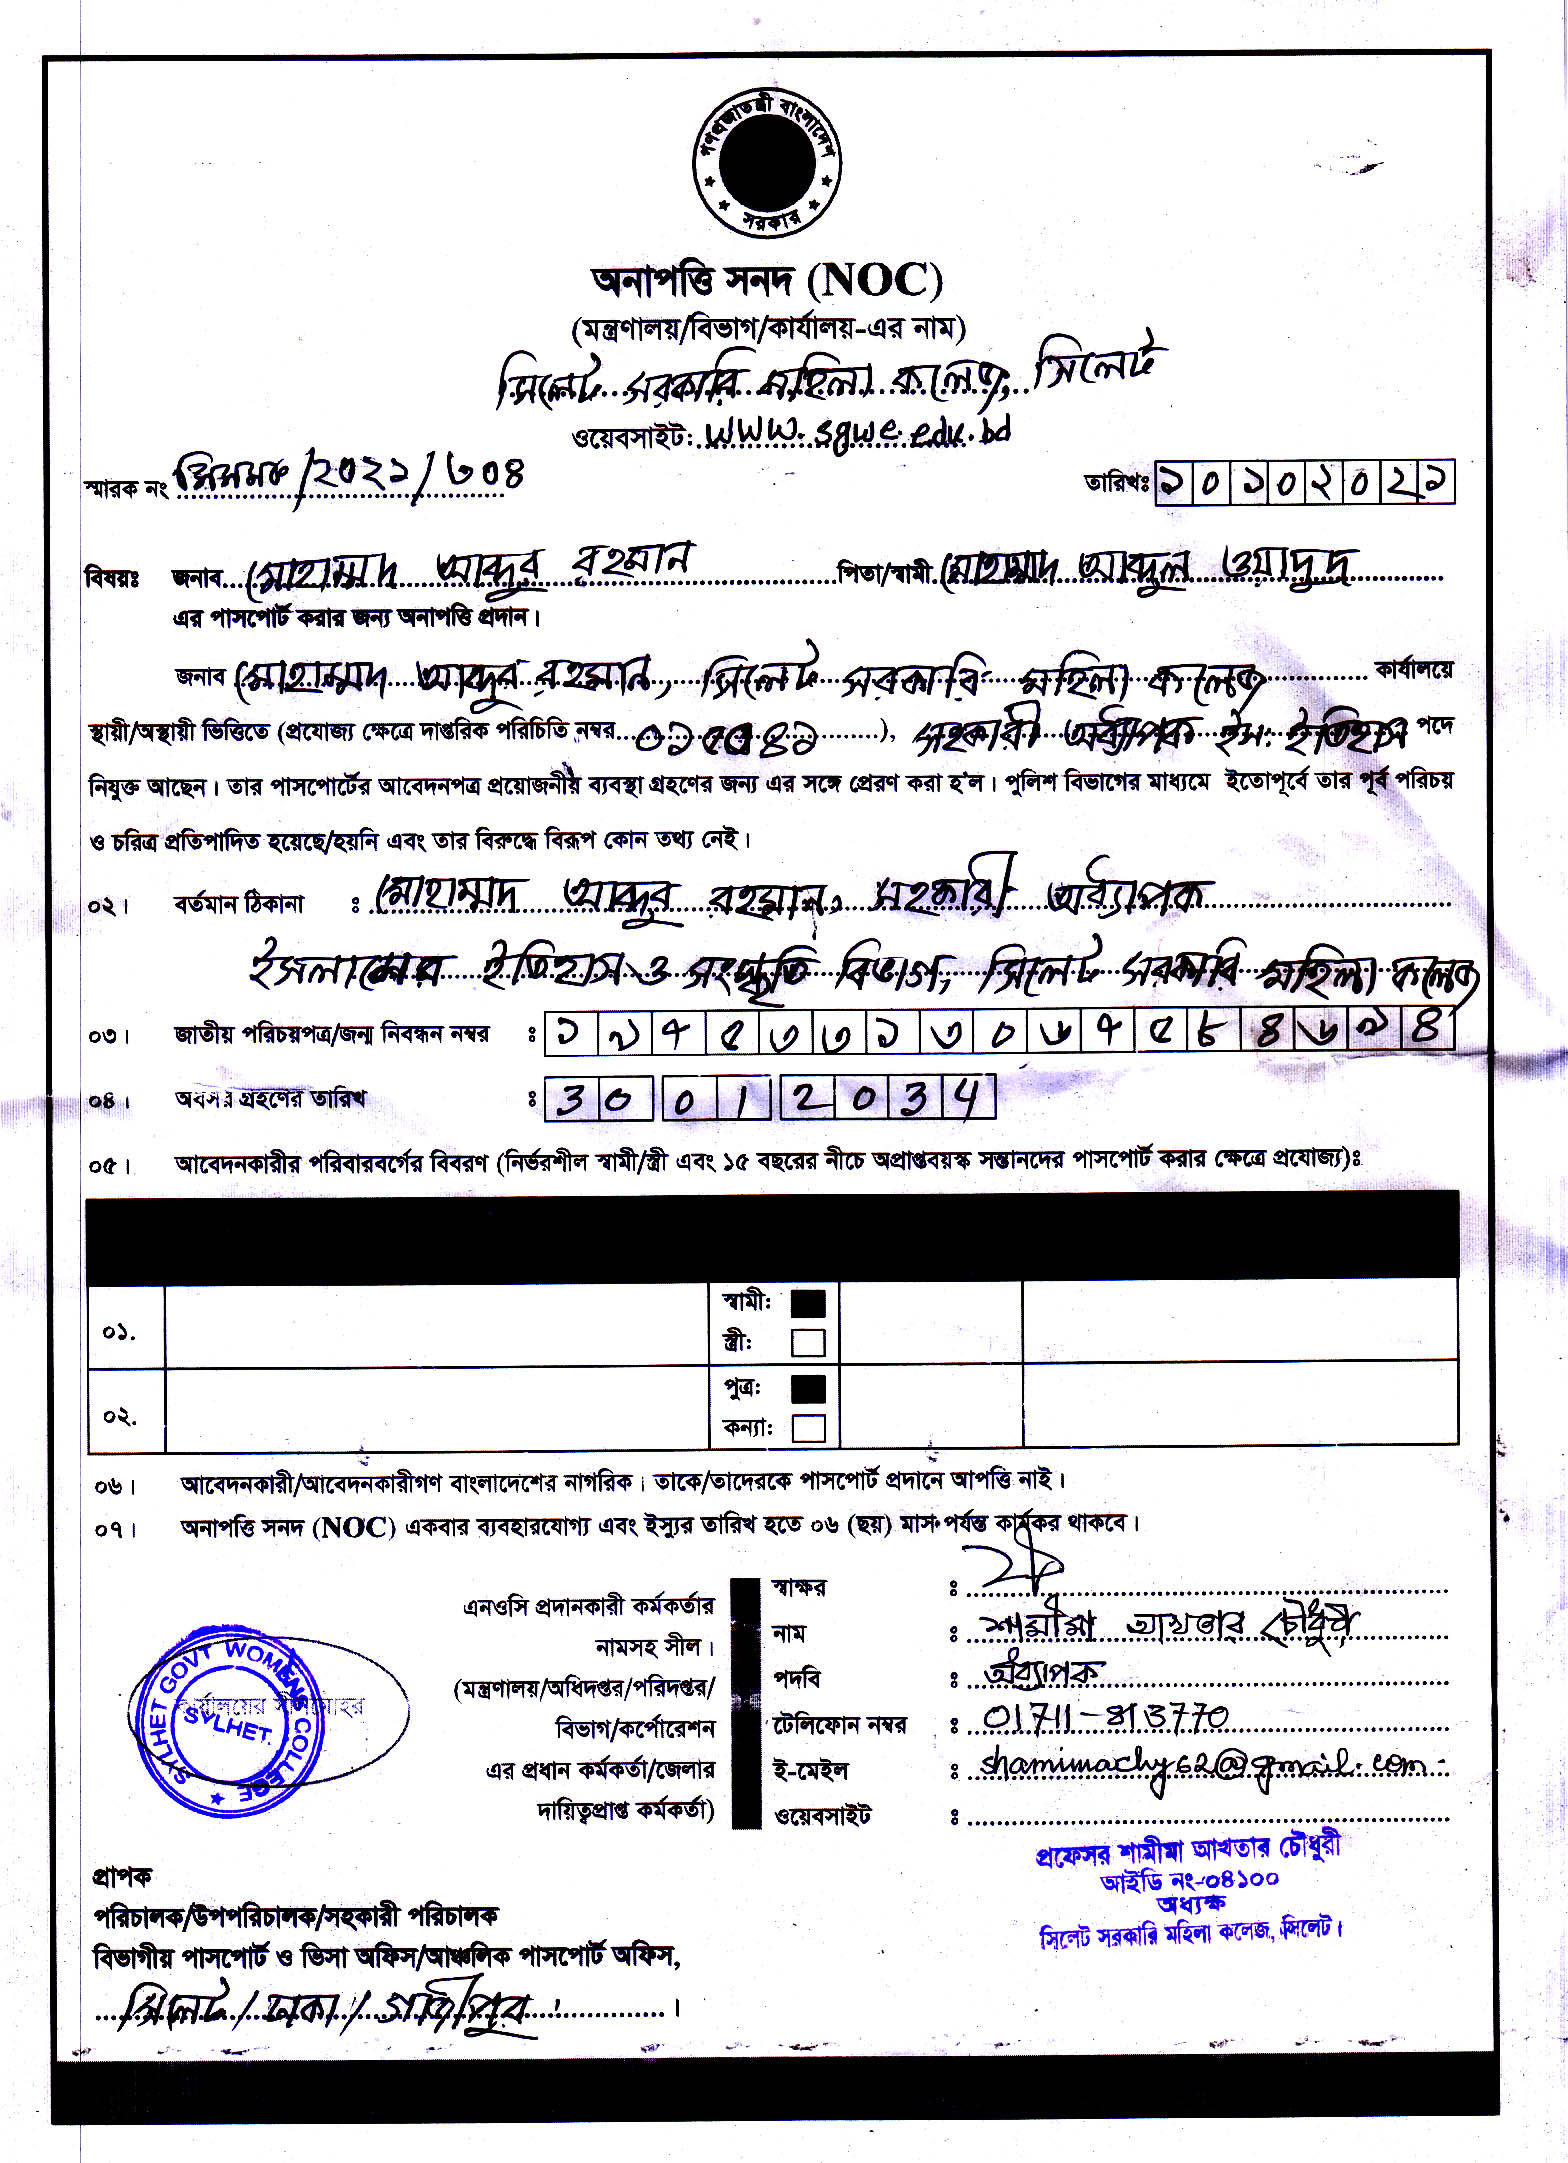 গণপ্রজাতন্ত্রী বাংলাদেশ
সরকার
অনাপত্তি সনদ (NOC)
(মন্ত্রণালয়/বিভাগ/কার্যালয়-এর নাম)
সিলেট সরকারি মহিলা কলেজ, সিলেট
ওয়েবসাইট: www.sgwc.edu.bd
স্মারক নং সিসমক/২০২১/৩০৪ তারিখঃ ১০১০২০২১
বিষয়ঃ জনাব মোহাম্মদ আব্দুর রহমান পিতা/স্বামী মোহাম্মদ আব্দুল ওয়াদুদ
এর পাসপোর্ট করার জন্য অনাপত্তি প্রদান।
জনাব মোহাম্মদ আব্দুর রহমান, সিলেট সরকারি মহিলা কলেজ কার্যালয়ে
স্থায়ী/অস্থায়ী ভিত্তিতে (প্রযোজ্য ক্ষেত্রে দাপ্তরিক পরিচিতি নম্বর), সহকারী অধ্যাপক ইস: ইতিহাস পদে
নিযুক্ত আছেন। তার পাসপোর্টের আবেদনপত্র প্রয়োজনীয় ব্যবস্থা গ্রহণের জন্য এর সঙ্গে প্রেরণ করা হ'ল। পুলিশ বিভাগের মাধ্যমে ইতোপূর্বে তার পূর্ব পরিচয়
ও চরিত্র প্রতিপাদিত হয়েছে/হয়নি এবং তার বিরুদ্ধে বিরূপ কোন তথ্য নেই।
০২। বর্তমান ঠিকানা ঃ মোহাম্মদ আব্দুর রহমান, সহকারী অধ্যাপক
ইসলামের ইতিহাস ও সংস্কৃতি বিভাগ, সিলেট সরকারি মহিলা কলেজ
০৩। জাতীয় পরিচয়পত্র/জন্ম নিবন্ধন নম্বর ঃ ১৯৭৫৩৩১৩০৬৭৫৮৪৬৯৪
০৪। অবসর গ্রহণের তারিখ ঃ 30 01 2034
০৫। আবেদনকারীর পরিবারবর্গের বিবরণ (নির্ভরশীল স্বামী/স্ত্রী এবং ১৫ বছরের নীচে অপ্রাপ্তবয়স্ক সন্তানদের পাসপোর্ট করার ক্ষেত্রে প্রযোজ্য)ঃ
০১. স্বামী:
স্ত্রী:
০২. পুত্র:
কন্যা:
০৬। আবেদনকারী/আবেদনকারীগণ বাংলাদেশের নাগরিক। তাকে/তাদেরকে পাসপোর্ট প্রদানে আপত্তি নাই।
০৭। অনাপত্তি সনদ (NOC) একবার ব্যবহারযোগ্য এবং ইস্যুর তারিখ হতে ০৬ (ছয়) মাস পর্যন্ত কার্যকর থাকবে।
এনওসি প্রদানকারী কর্মকর্তার
নামসহ সীল।
(মন্ত্রণালয়/অধিদপ্তর/পরিদপ্তর/
বিভাগ/কর্পোরেশন
এর প্রধান কর্মকর্তা/জেলার
দায়িত্বপ্রাপ্ত কর্মকর্তা)
স্বাক্ষর ঃ
নাম ঃ শামীমা আখতার চৌধুরী
পদবি ঃ অধ্যাপক
টেলিফোন নম্বর ঃ 01711-813770
ই-মেইল ঃ shamimachy62@gmail.com
ওয়েবসাইট ঃ
কার্যালয়ের সীলমোহর
SYLHET GOVT WOMENS COLLEGE
SYLHET.
প্রফেসর শামীমা আখতার চৌধুরী
আইডি নং-০৪১০০
অধ্যক্ষ
সিলেট সরকারি মহিলা কলেজ, সিলেট।
প্রাপক
পরিচালক/উপপরিচালক/সহকারী পরিচালক
বিভাগীয় পাসপোর্ট ও ভিসা অফিস/আঞ্চলিক পাসপোর্ট অফিস,
সিলেট/ঢাকা/গাজীপুর।